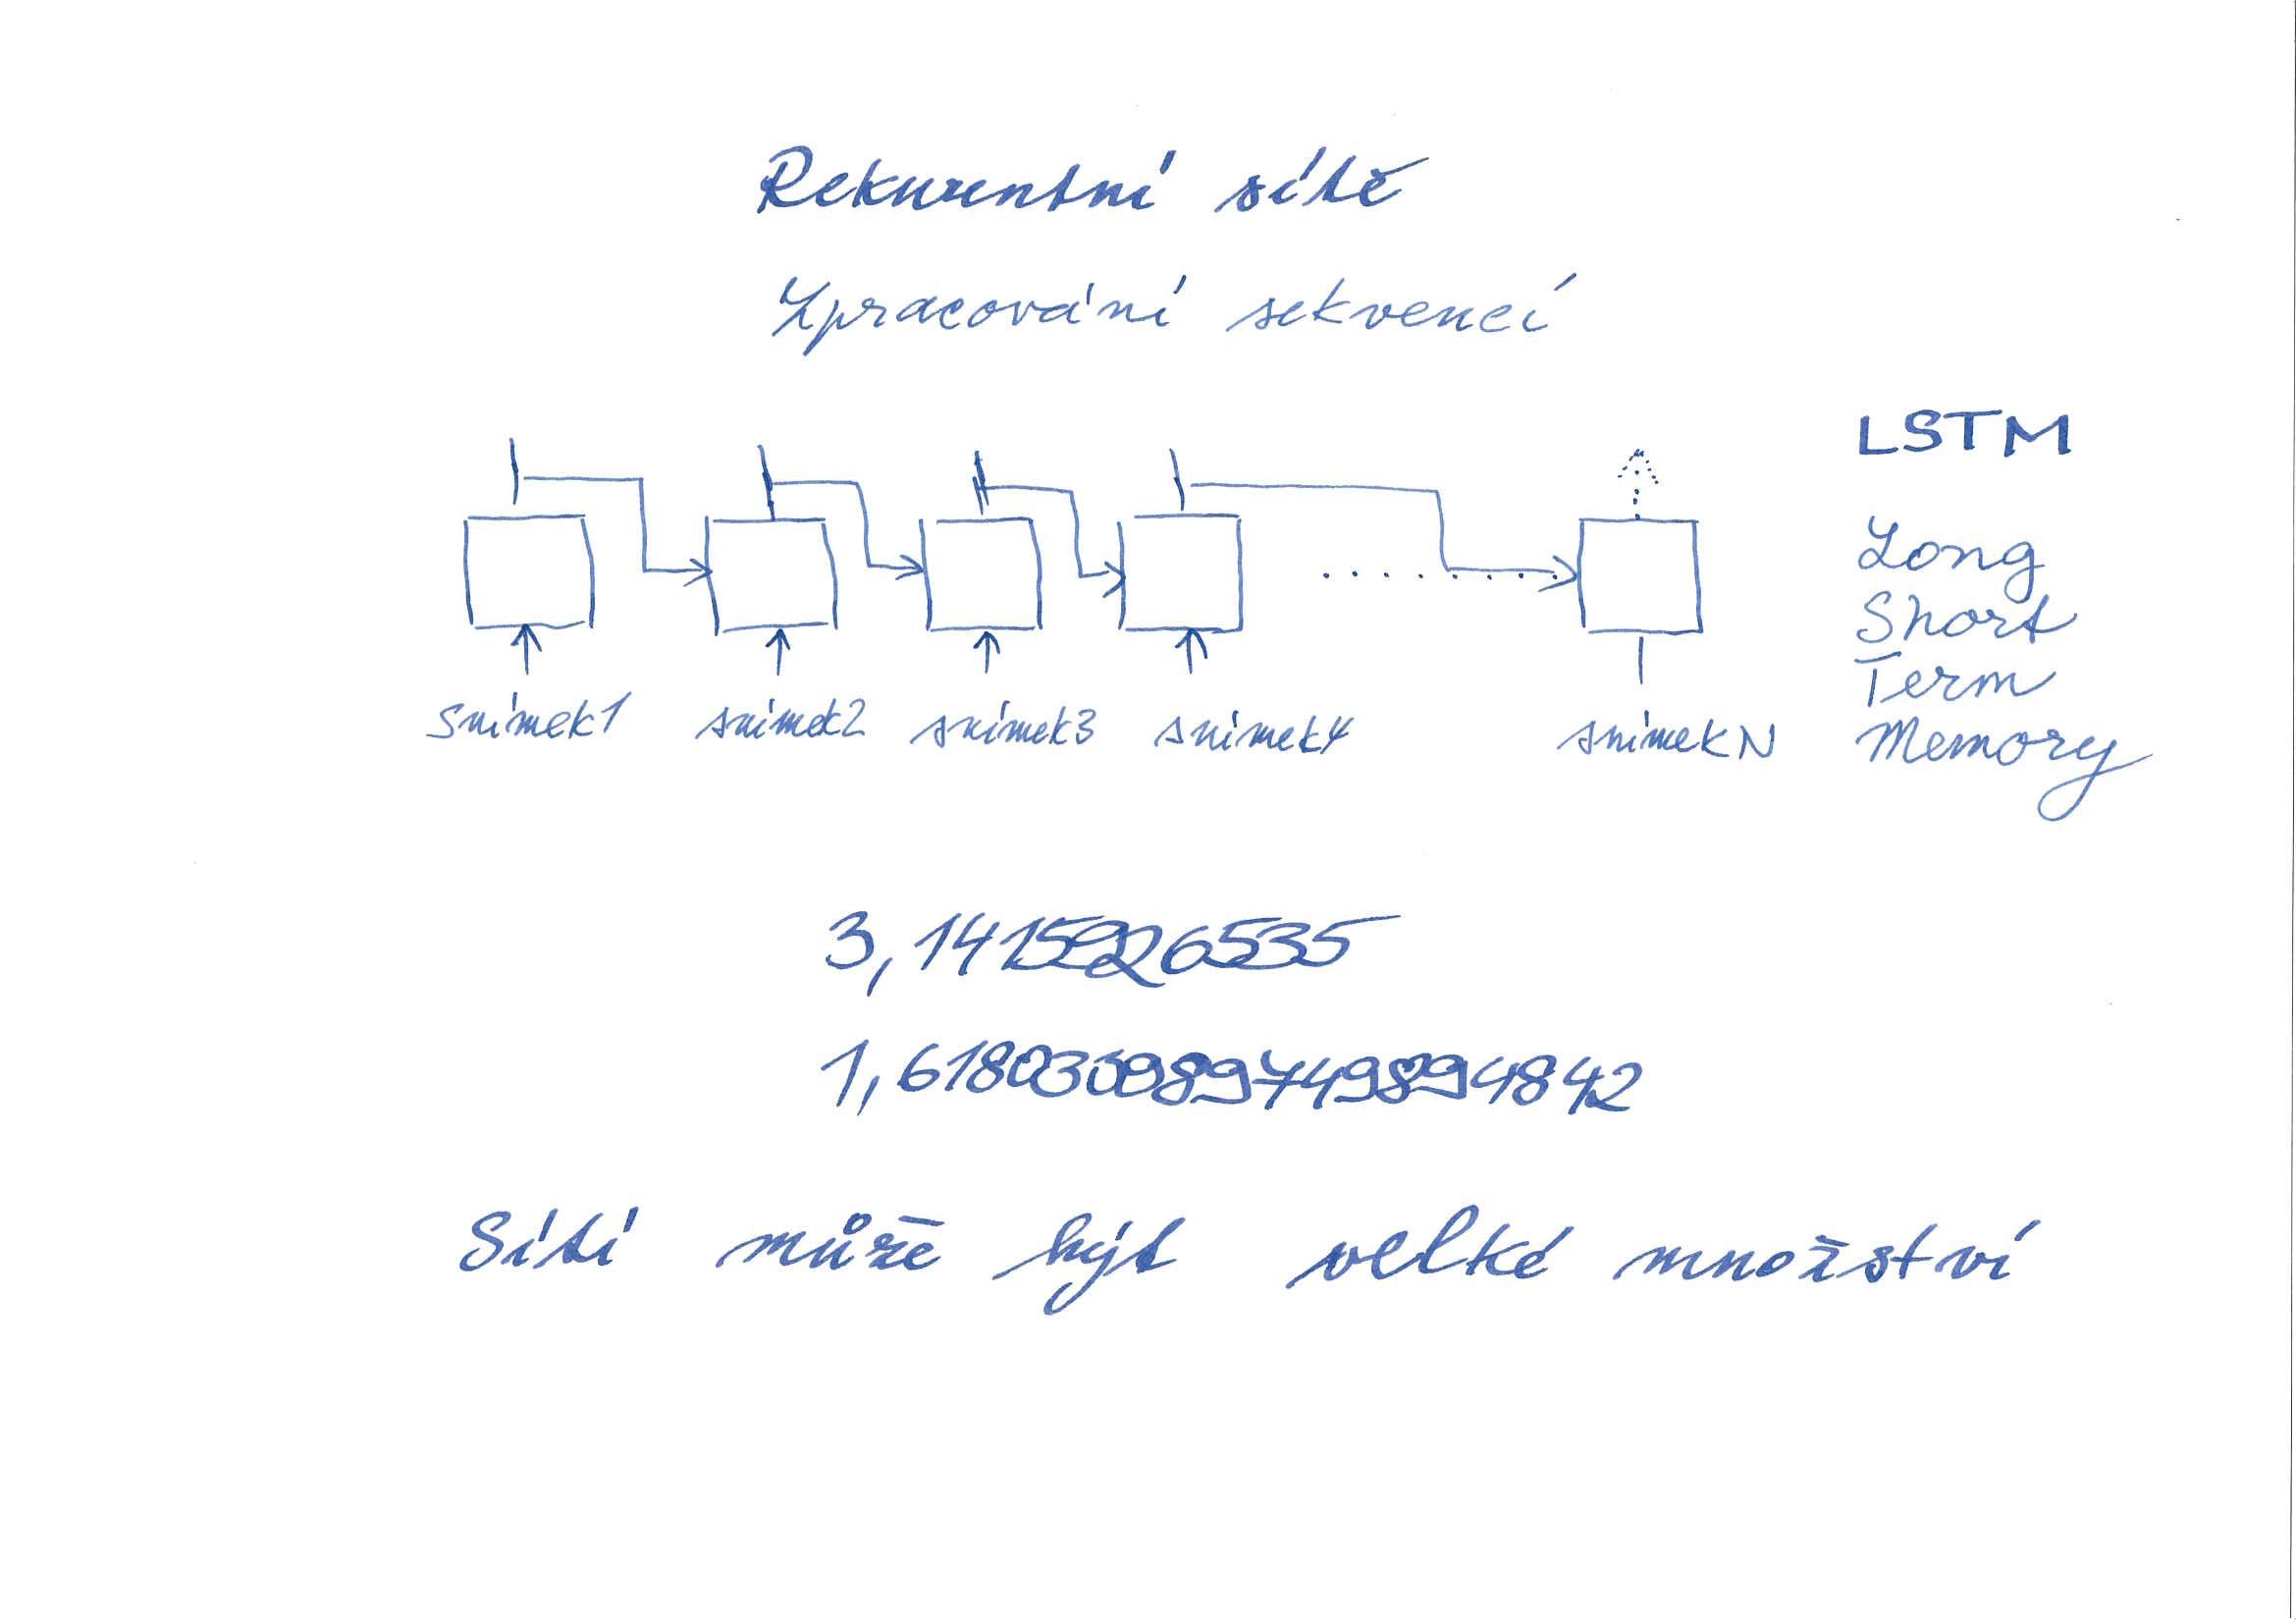 Rekurentní sítě
Zpracování sekvencí
LSTM
Long
Short
Term
Memory
snímek1 snímek2 snímek3 snímek4 snímek N
3,1415926535
1,618033989749894842
Sítí může být velké množství